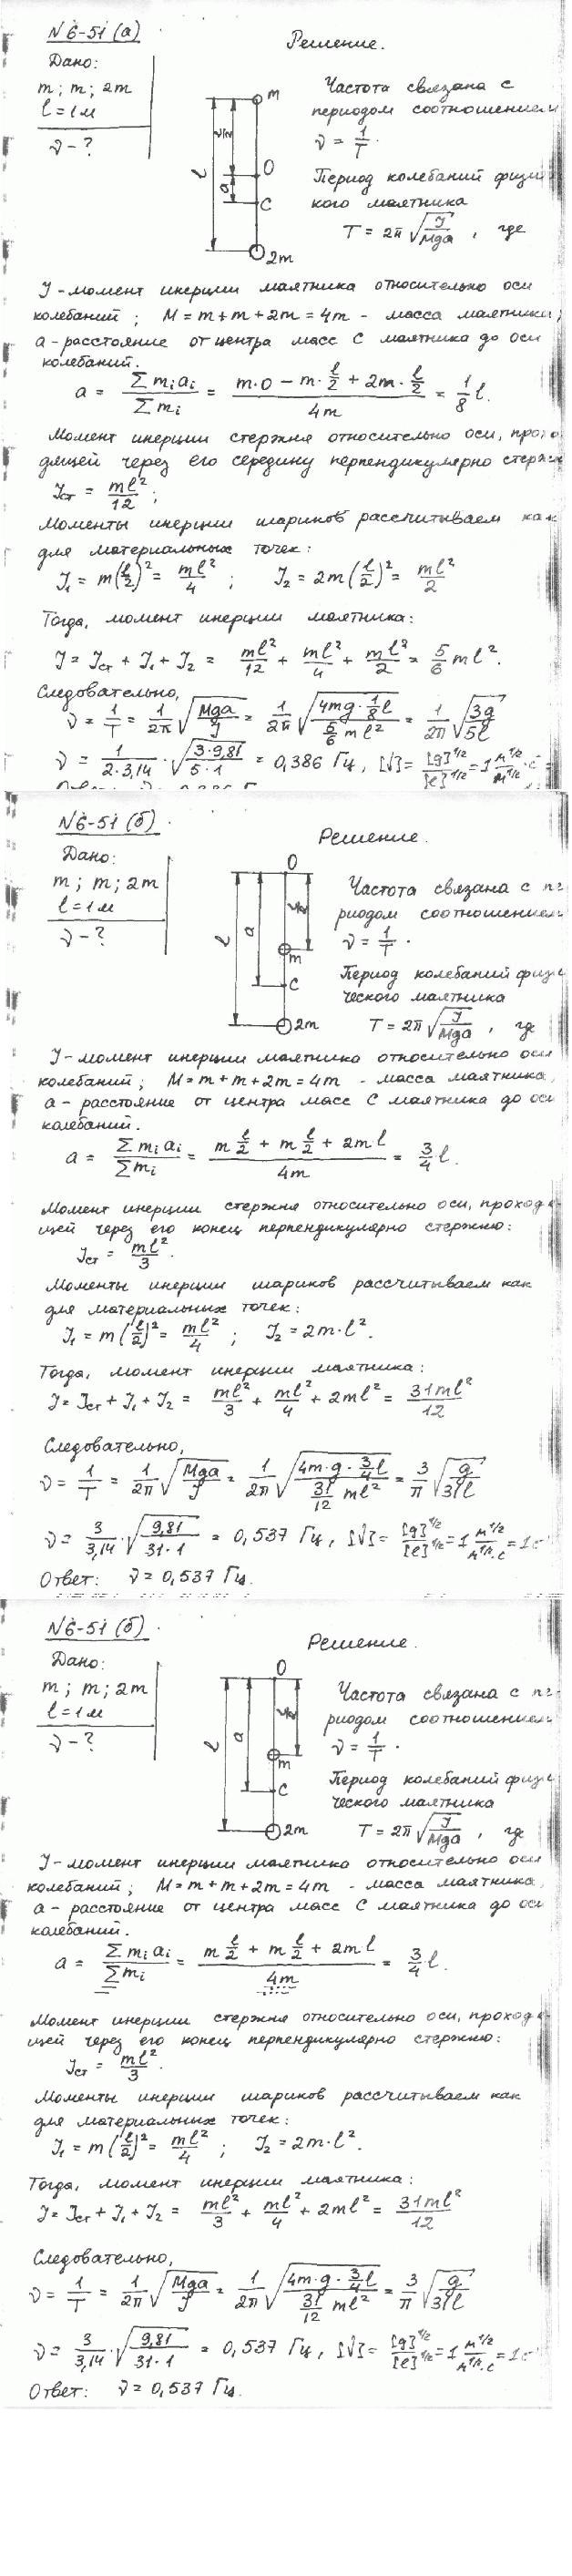 N6-51 (а)
Решение.
Дано:
m; m; 2m
l = 1м
ν - ?
m
l/2
l
O
a
C
2m
Частота связана с
периодом соотношением
ν = 1/T.
Период колебаний физи
кого маятника
T = 2π√(J/Mga) , где
J - момент инерции маятника относительно оси
колебаний ; M = m + m + 2m = 4m - масса маятника;
a - расстояние от центра масс C маятника до оси
колебаний.
a = Σ mᵢaᵢ / Σ mᵢ = (m·0 − m·l/2 + 2m·l/2) / 4m = 1/8 l.
Момент инерции стержня относительно оси, прохо
дящей через его середину перпендикулярно стерж
Jст = ml²/12 ;
Моменты инерции шариков рассчитываем как
для материальных точек:
J₁ = m(l/2)² = ml²/4 ; J₂ = 2m(l/2)² = ml²/2
Тогда, момент инерции маятника:
J = Jст + J₁ + J₂ = ml²/12 + ml²/4 + ml²/2 = 5/6 ml².
Следовательно,
ν = 1/T = 1/2π √(Mga/J) = 1/2π √(4mg·1/8 l / 5/6 ml²) = 1/2π √(3g/5l)
ν = 1/(2·3,14) · √(3·9,81/5·1) = 0,386 Гц, [ν] = [g]^1/2/[l]^1/2 = 1 м^1/2/м^1/2·с =
N6-51 (б) .
Решение.
Дано:
m ; m ; 2m
l = 1м
ν - ?
O
l
a
l/2
m
C
2m
Частота связана с пе
риодом соотношением
ν = 1/T .
Период колебаний физи
ческого маятника
T = 2π√(J/Mga) , где
J - момент инерции маятника относительно оси
колебаний ; M = m + m + 2m = 4m - масса маятника,
a - расстояние от центра масс C маятника до оси
колебаний.
a = Σ mᵢaᵢ / Σ mᵢ = (m l/2 + m l/2 + 2ml) / 4m = 3/4 l.
Момент инерции стержня относительно оси, проход
щей через его конец перпендикулярно стержню:
Jст = ml²/3.
Моменты инерции шариков рассчитываем как
для материальных точек:
J₁ = m(l/2)² = ml²/4 ; J₂ = 2m·l².
Тогда, момент инерции маятника:
J = Jст + J₁ + J₂ = ml²/3 + ml²/4 + 2ml² = 31ml²/12
Следовательно,
ν = 1/T = 1/2π √(Mga/J) = 1/2π √(4m·g·3/4 l / 31/12 ml²) = 3/π √(g/31l)
ν = 3/3,14 · √(9,81/31·1) = 0,537 Гц, [ν] = [g]^1/2/[l]^1/2 = 1 м^1/2/м^1/2·с = 1с⁻¹
Ответ: ν = 0,537 Гц.
N6-51 (б) .
Решение.
Дано:
m ; m ; 2m
l = 1м
ν - ?
O
l
a
l/2
m
C
2m
Частота связана с пе
риодом соотношением
ν = 1/T .
Период колебаний физи
ческого маятника
T = 2π√(J/Mga) , где
J - момент инерции маятника относительно оси
колебаний ; M = m + m + 2m = 4m - масса маятника,
a - расстояние от центра масс C маятника до оси
колебаний.
a = Σ mᵢaᵢ / Σ mᵢ = (m l/2 + m l/2 + 2ml) / 4m = 3/4 l.
Момент инерции стержня относительно оси, проход
щей через его конец перпендикулярно стержню:
Jст = ml²/3.
Моменты инерции шариков рассчитываем как
для материальных точек:
J₁ = m(l/2)² = ml²/4 ; J₂ = 2m·l².
Тогда, момент инерции маятника:
J = Jст + J₁ + J₂ = ml²/3 + ml²/4 + 2ml² = 31ml²/12
Следовательно,
ν = 1/T = 1/2π √(Mga/J) = 1/2π √(4m·g·3/4 l / 31/12 ml²) = 3/π √(g/31l)
ν = 3/3,14 · √(9,81/31·1) = 0,537 Гц, [ν] = [g]^1/2/[l]^1/2 = 1 м^1/2/м^1/2·с = 1с⁻¹
Ответ: ν = 0,537 Гц.